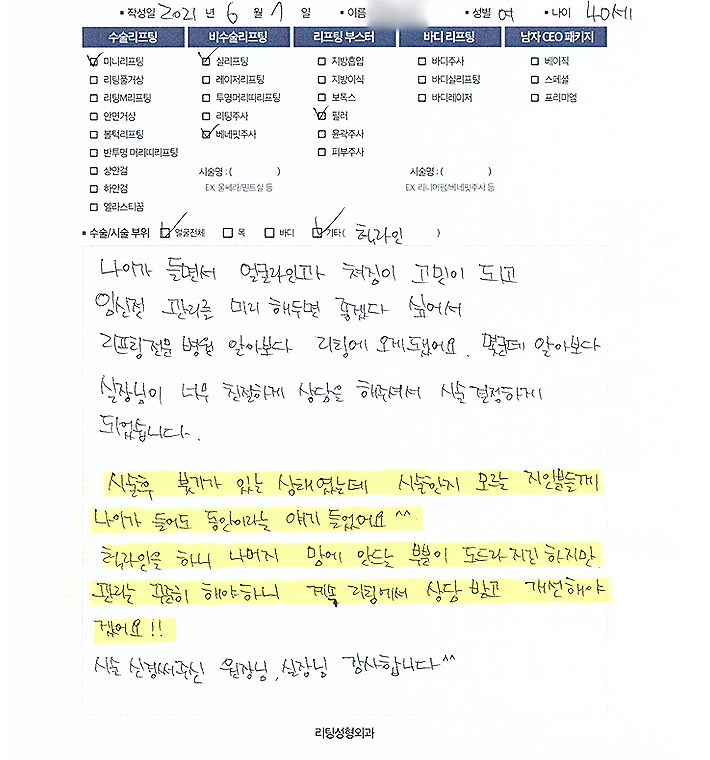 • 작성일 2021 년 6 월 7 일 • 이름 • 성별 여 • 나이 40세
수술리프팅 비수술리프팅 리프팅 부스터 바디 리프팅 남자 CEO 패키지
미니리프팅 실리프팅 지방흡입 바디주사 베이직
리팅풀거상 레이저리프팅 지방이식 바디실리프팅 스페셜
리팅M리프팅 투명머리띠리프팅 보톡스 바디레이저 프리미엄
안면거상 리팅주사 필러
볼턱리프팅 베네핏주사 윤곽주사
반투명 머리띠리프팅 피부주사
상안검 시술명 : ( ) 시술명 : ( )
하안검 EX. 울쎄라/민트실 등 EX. 리니어펌/베네핏주사 등
엘라스티꿈
• 수술/시술 부위 얼굴전체 목 바디 기타( 턱라인 )
나이가 들면서 얼굴라인과 쳐짐이 고민이 되고
임신전 관리를 미리 해두면 좋겠다 싶어서
리프팅전문 병원 알아보다 리팅에 오게됐어요. 몇군데 알아보다
실장님이 너무 친절하게 상담을 해주셔서 시술결정하게
되었습니다.
시술후 붓기가 있는 상태였는데 시술한지 모르는 지인분들께
나이가 들어도 동안이라는 얘기 들었어요^^
턱라인을 하니 나머지 맘에 안드는 부분이 도드라지긴 하지만
관리는 꾸준히 해야하니 계속 리팅에서 상담 받고 개선해야
겠어요!!
시술 신경써주신 원장님, 실장님 감사합니다^^
리팅성형외과